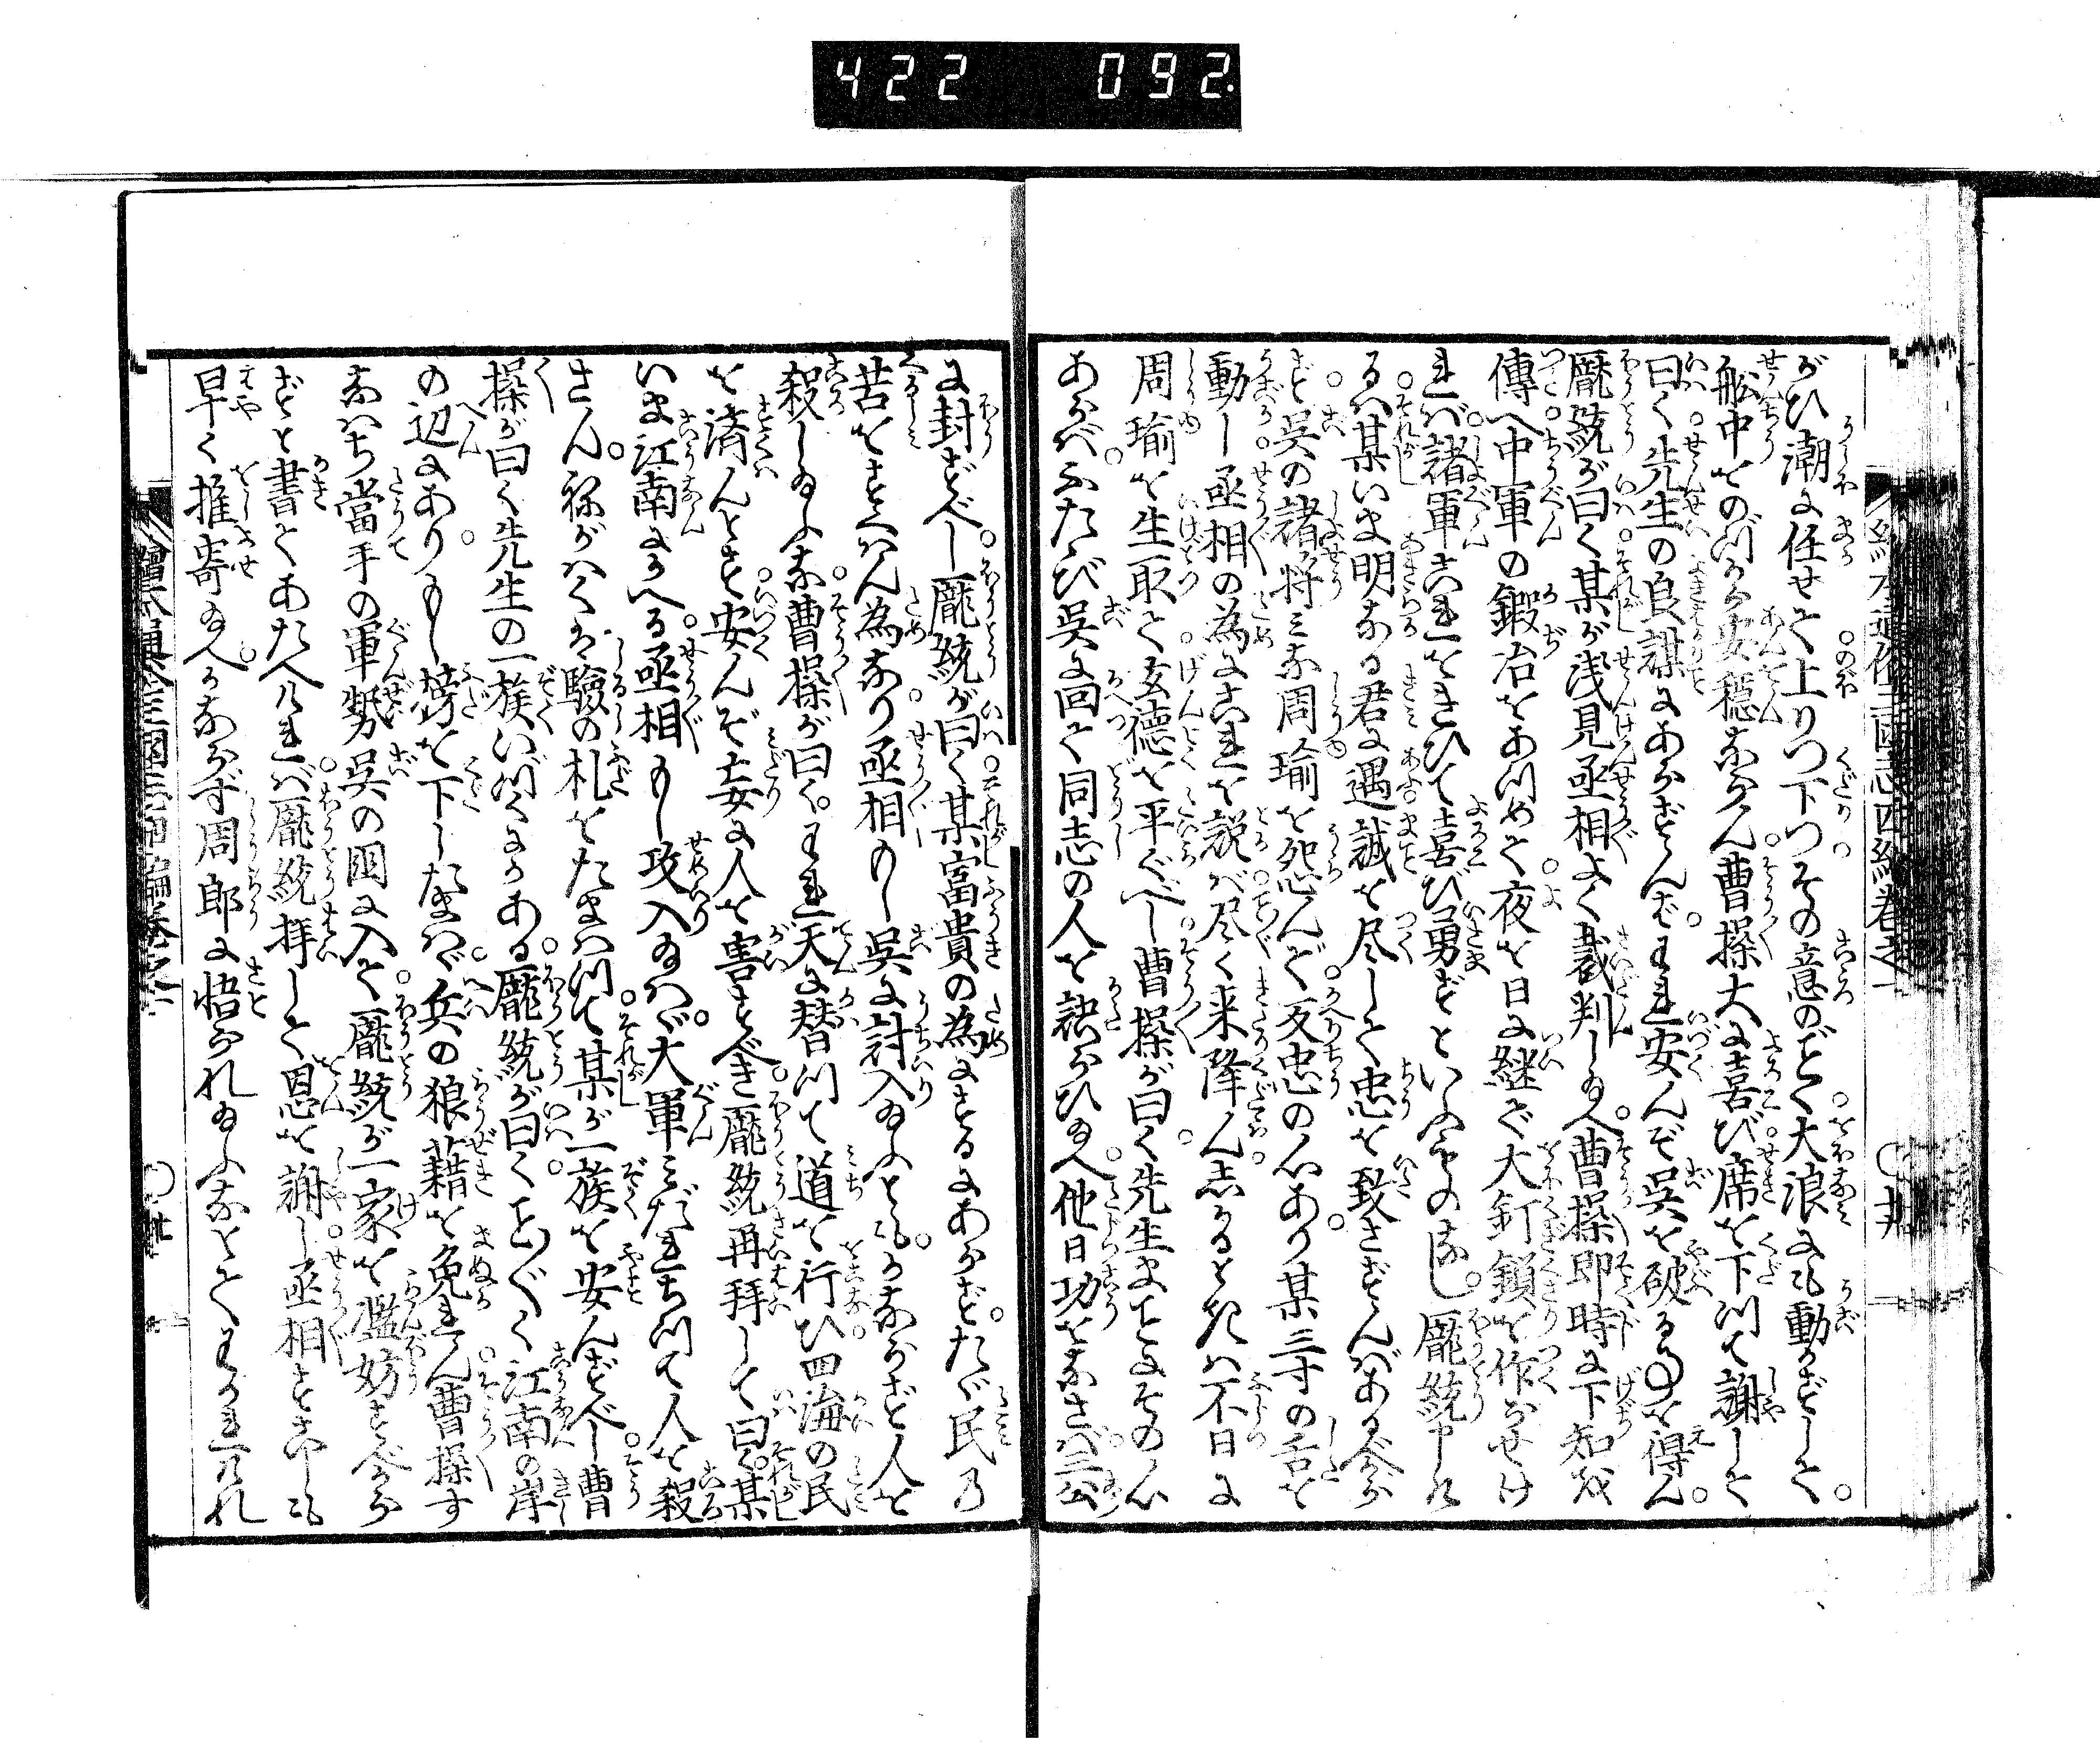 422 092.
がひ潮に任せて上りつ下つその意のごく大浪にも動かずして
舩中その閙か安穏ならん曹操大に喜び席を下つて謝して
曰く先生の良謀にあらずんばわれ安んぞ呉を破る事を得ん
龐統が曰く某が浅見丞相よく裁判し給へ曹操即時に下知を
傳へ中軍の鍛冶をあつめて夜を日に継ぎ大釘鎖を作らせけ
れば諸軍これをきひて喜び勇ずといふものなし龐統申しけ
るは某いま明なる君に遇誠を尽して忠を致さずんばあるべから
ず呉の諸将みな周瑜を怨んで反忠の心あり某三寸の舌を
動し丞相の為にこれを説ば尽く来降んしかるときは不日に
周瑜を生取て玄徳を平ぐべし曹操が曰く先生まことにその心
あらばふたゝび呉に回て同志の人を語らひ給へ他日功をなさば三公
に封ずべし龐統が曰く某富貴の為にするにあらずたゞ民の
苦をすくはん為なり丞相もし呉に討入給ふともかならず人を
殺し給ふな曹操が曰くわれ天に替つて道を行ひ四海の民
を済んとす安んぞ妄に人を害すべき龐統再拝して曰く某
いま江南にかへる丞相もし攻入給はゞ大軍みだれ立つて人を殺
さんねがはくは験の札をたまはつて某が一族を安んずべし曹
操が曰く先生の一族いづくにかある龐統が曰くことごとく江南の岸
の辺にありもし榜を下したまはゞ兵の狼藉を免れてん曹操す
なはち當手の軍勢呉の国に入て龐統が一家を濫妨すべから
ずと書てあたへければ龐統拝して恩を謝し丞相すこしも
早く推寄給へかならず周郎に悟られ給ふなとてわかれけれ